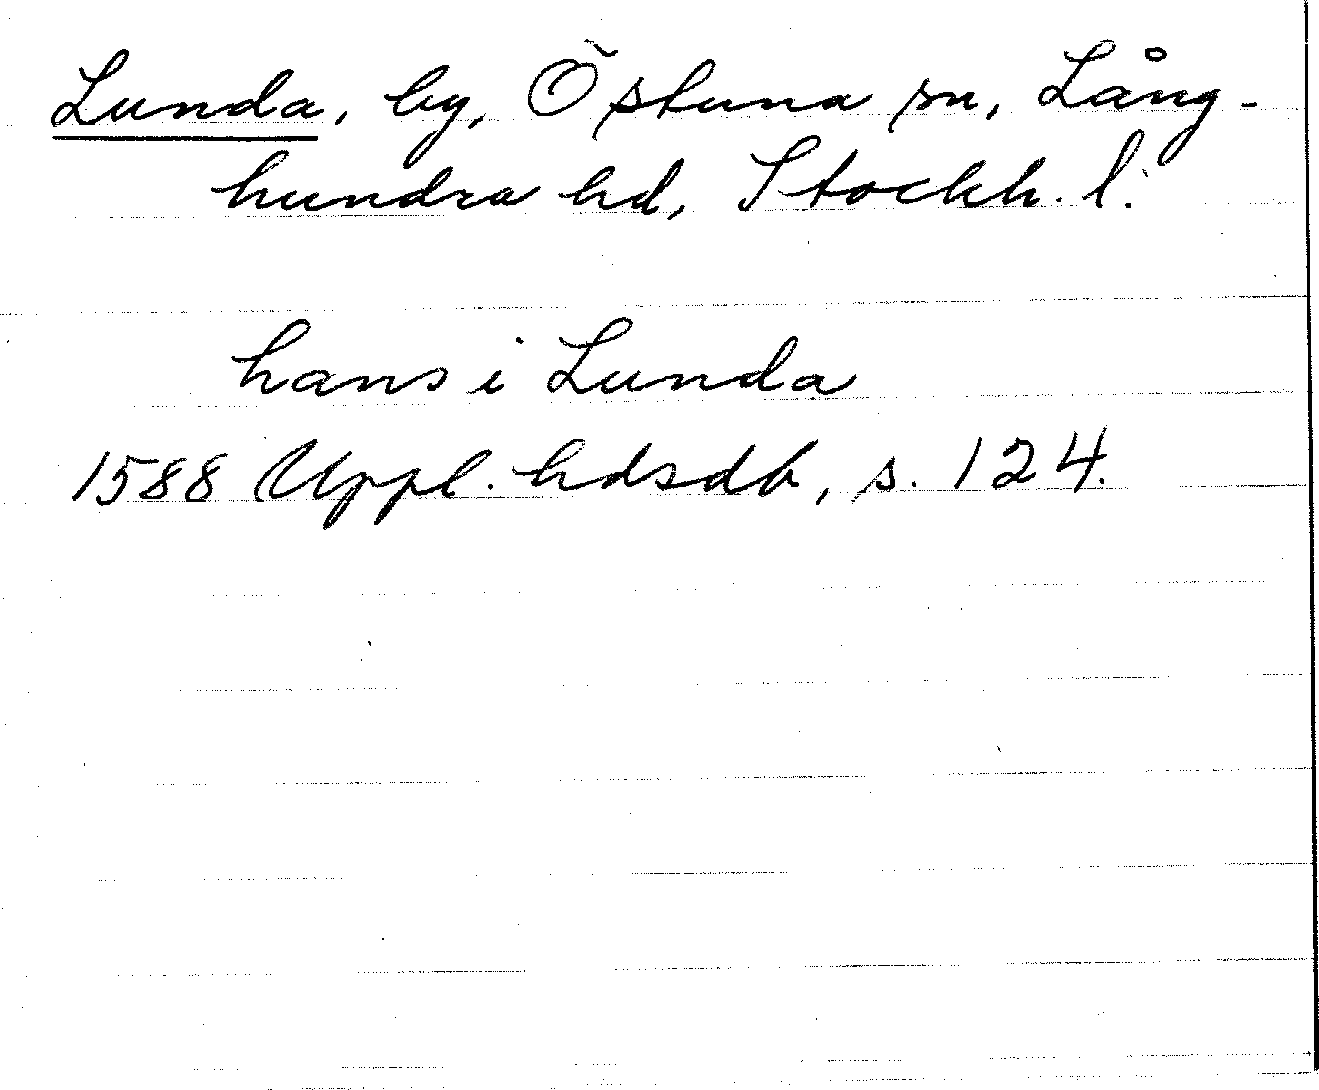 Lunda, by, Östuna sn, Lång-
hundra hd, Stockh. l.
hans i Lunda
1588 Uppl. hdsdb, s. 124.